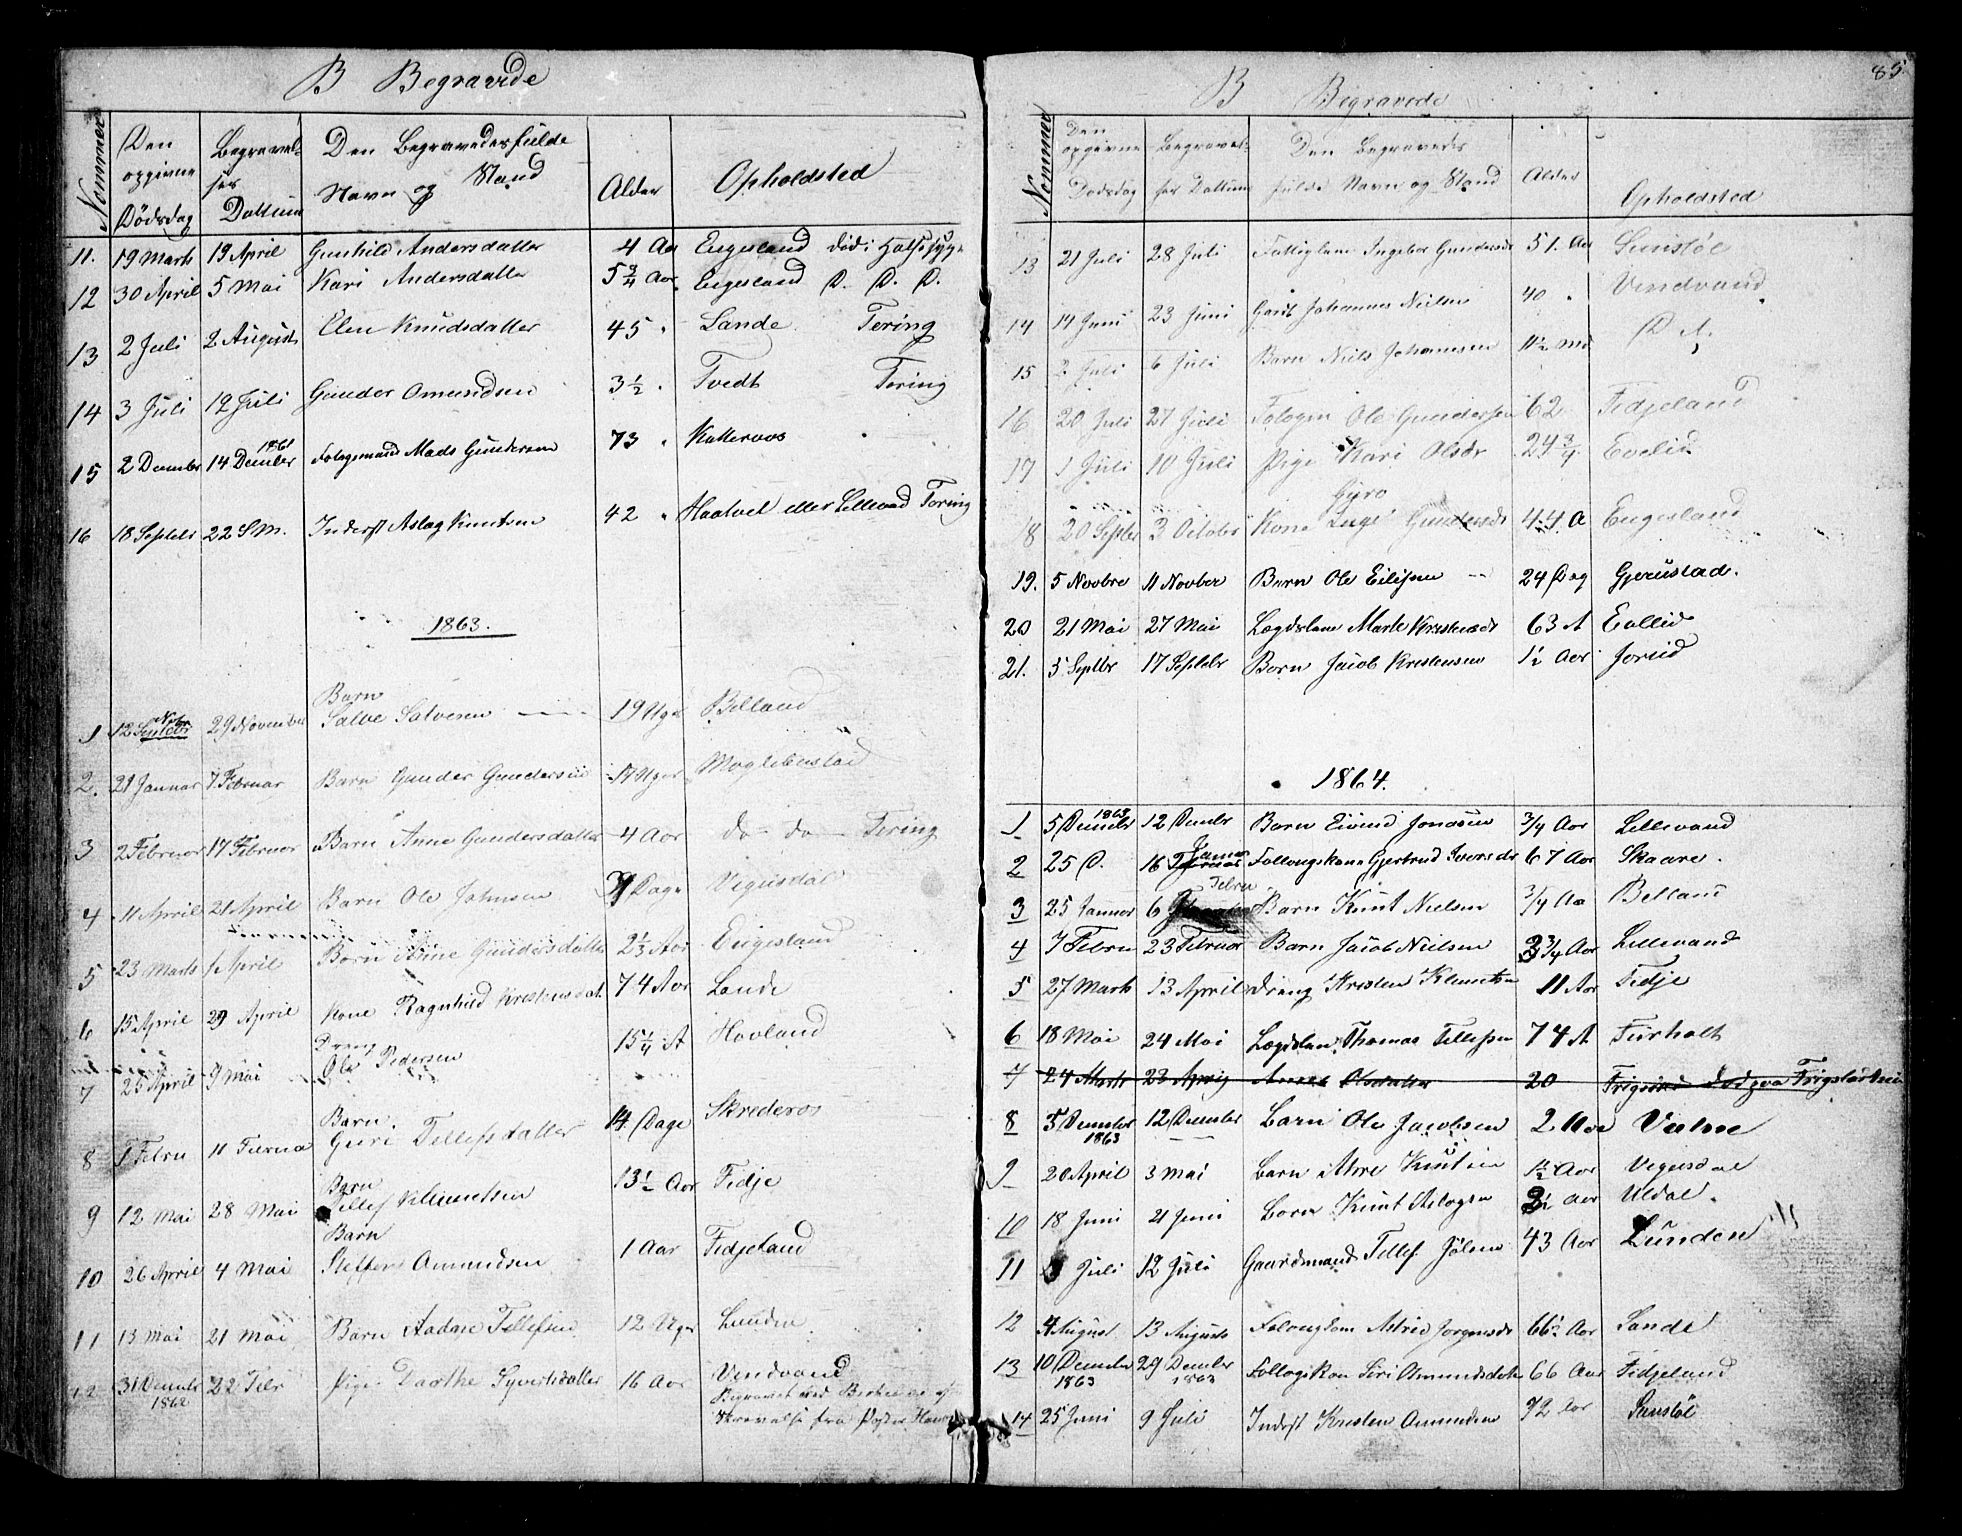 B Begravede
Nommer
Den opgivne Dødsdag
Begravelser Dattum
Den Begravedes fulde Navn og Stand
Alder
Opholdsted
11. 19 Marts 19 April Gunhild Andersdatter 4 Aar Engesland død i Halssyge
12 30 April 5 Mai Kari Andersdatter 5 3/4 Aar Engesland D. D. D.
13 2 Juli 2 August Elen Knudsdatter 45 " Lande Tering
14 3 Juli 12 Juli Gunder Omundsen 3 1/2 " Tvedt Tering
15 2 December 14 December 1861 Mads Gundersen 73 " Katteraas
16 18 Septebr 22 S.M. Inderst Aslag Knutsen 42 " Haatvet eller Lillevand Tering
1863.
1 12 Novbr 29 November Barn Salve Salvesen 19 Uger Belland
2. 21 Januar 7 Februar Barn Gunder Gundersen 17 Uger
3 2 Februar 17 Februar Barn Anne Gundersdatter 4 Aar do do Tering
4 11 April 21 April Barn Ole Johnsen Dage Vegusdal
5 23 Marts 1 April Barn Anne Gundersdatter 2 1/3 Aar Engesland
6 15 April 29 April Kone Ragnhild Kristensdat. 74 Aar Lande
7 25 April 9 Mai Dreng Ole Pedersen 15 1/4 A Hovland
8 1 Febru 11 Barn Guri Tellefsdatter 14 Dage Skrederos
9 12 Mai 28 Mai Barn Tellef Klemetsen 13 1/2 Aar Fidje
10 26 April 4 Mai Barn Steffen Ommundsen 1 Aar Fidjeland
11 13 Mai 21 Mai Barn Aadne Tellefsen 12 Uger Lunden
12 31 December 1862 22 Febr Pige Dorthe Syvertsdatter 16 Aar Vendvand
Begravet ved
fra
85
B Begravede
Nommer
Den opgivne Dødsdag
Begravelser Dattum
Den Begravedes fulde Navn og Stand
Alder
Opholdsted
13 21 Juli 28 Juli Fattiglem Ingebor Gundersdr 51. Aar Senstøl
14 14 Juni 23 Juni Johannes Nielsen 40 " Vendvand
15 2 Juli 6 Juli Barn Niels Johannsen 11 1/2 Md D A.
16 20 Juli 27 Juli Ole Gundersen 62 Fidjeland
17 1 Juli 10 Juli Pige Kari Olsdr 24 3/4 Evelid
18 20 Septbr 3 October Kone Guro Gundersdr 44 A Engesland
19. 5 Novbre 11 Novber Barn Ole Eilifsen 24 Dag Gjerustad.
20 21 Mai 27 Mai Lægdslem Marte Kristensdr 63 A Evllid
21. 5 Septbr 17 Septebr Barn Jacob Kristensen 1 1/2 Aar
1864.
1 5 Decmbr 1863 12 Decmbr Barn Eivind Jonassen 3/4 Aar Lillevand
2 25 D. 16 Januar Gjertrud Iversdr 67 Aar Skaare.
3 25 Januar 6 Febru Barn Knut Nielsen 3/4 Aa Belland
4 7 Febru 23 Februar Barn Jacob Nielsen 3 3/4 Aar Lillevand
5 27 Marts 13 April dreng Kristen Klemetsen 11 Aar Fidje
6 18 Mai 24 Mai Lægdslem Thomas Tellefsen 74 A Furholt
7 24 Marts 23 April Olsdatter 20
8 5 December 1863 12 December Barn Ole Jacobsen 2 Aar
9 20 April 3 Mai Barn Knutsen 1 1/2 Aar Vegusdal
10 18 Juni 21 Juni Barn Knut Aslagsen 3 1/2 Aar Uldal.
11 Juli 12 Juli Gaardmand Tellef 43 Aar Lunden
12 4 August 13 Augusts Astrid Jorgensdr 66 1/2 Aar Lande
13 10 Decmber 1863 29 Decmber 1863 Siri Omundsdatr 66 Aar Fidjeland
14 25 Juni 9 Juli Inderst Kristen Omundsen 72 Aar Senstøl